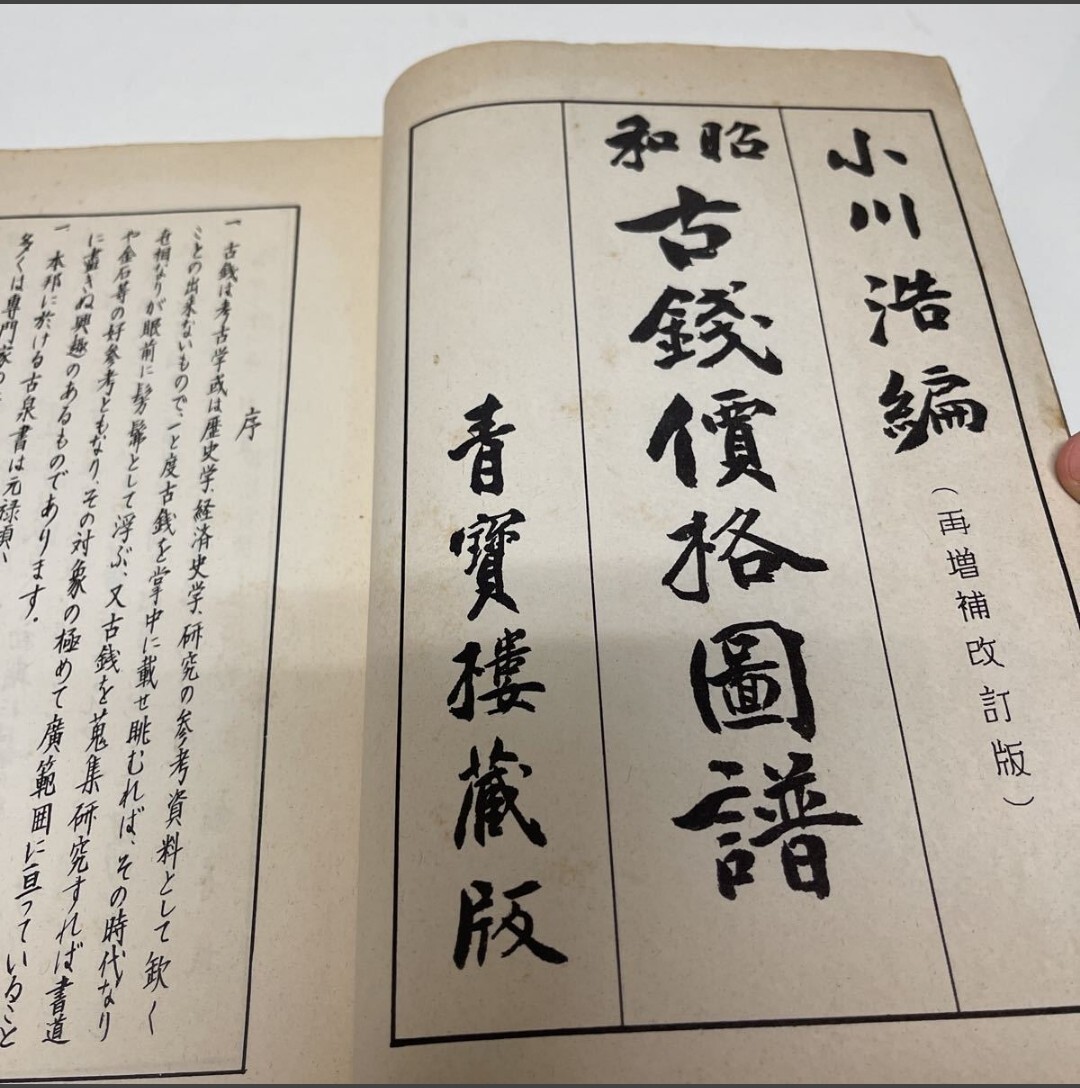 小川浩編
(再増補改訂版)
昭和
古錢價格圖譜
青寶樓蔵版
序
一 古銭は考古学或は歴史学、経済史学、研究の参考資料として欽く
ことの出来ないもので、一と度古銭を掌中に載せ眺むれば、その時代なり
有相なりが眼前に髣髴として浮ぶ、又古銭を蒐集研究すれば書道
や金石等の好参考ともなり、その対象の極めて廣範囲に亘っていること
に盡きぬ興趣のあるものであります。
一 本邦に於ける古泉書は元禄頃、
多くは専門家の